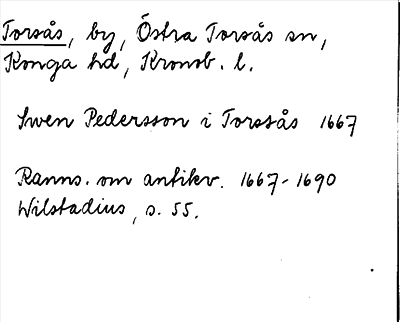 Torsås, by, Östra Torsås sn,
Konga hd, Kronob. l.
Swen Pedersson i Torsås 1667
Ranns. om antikv. 1667-1690
Wilstadius, s. 55.